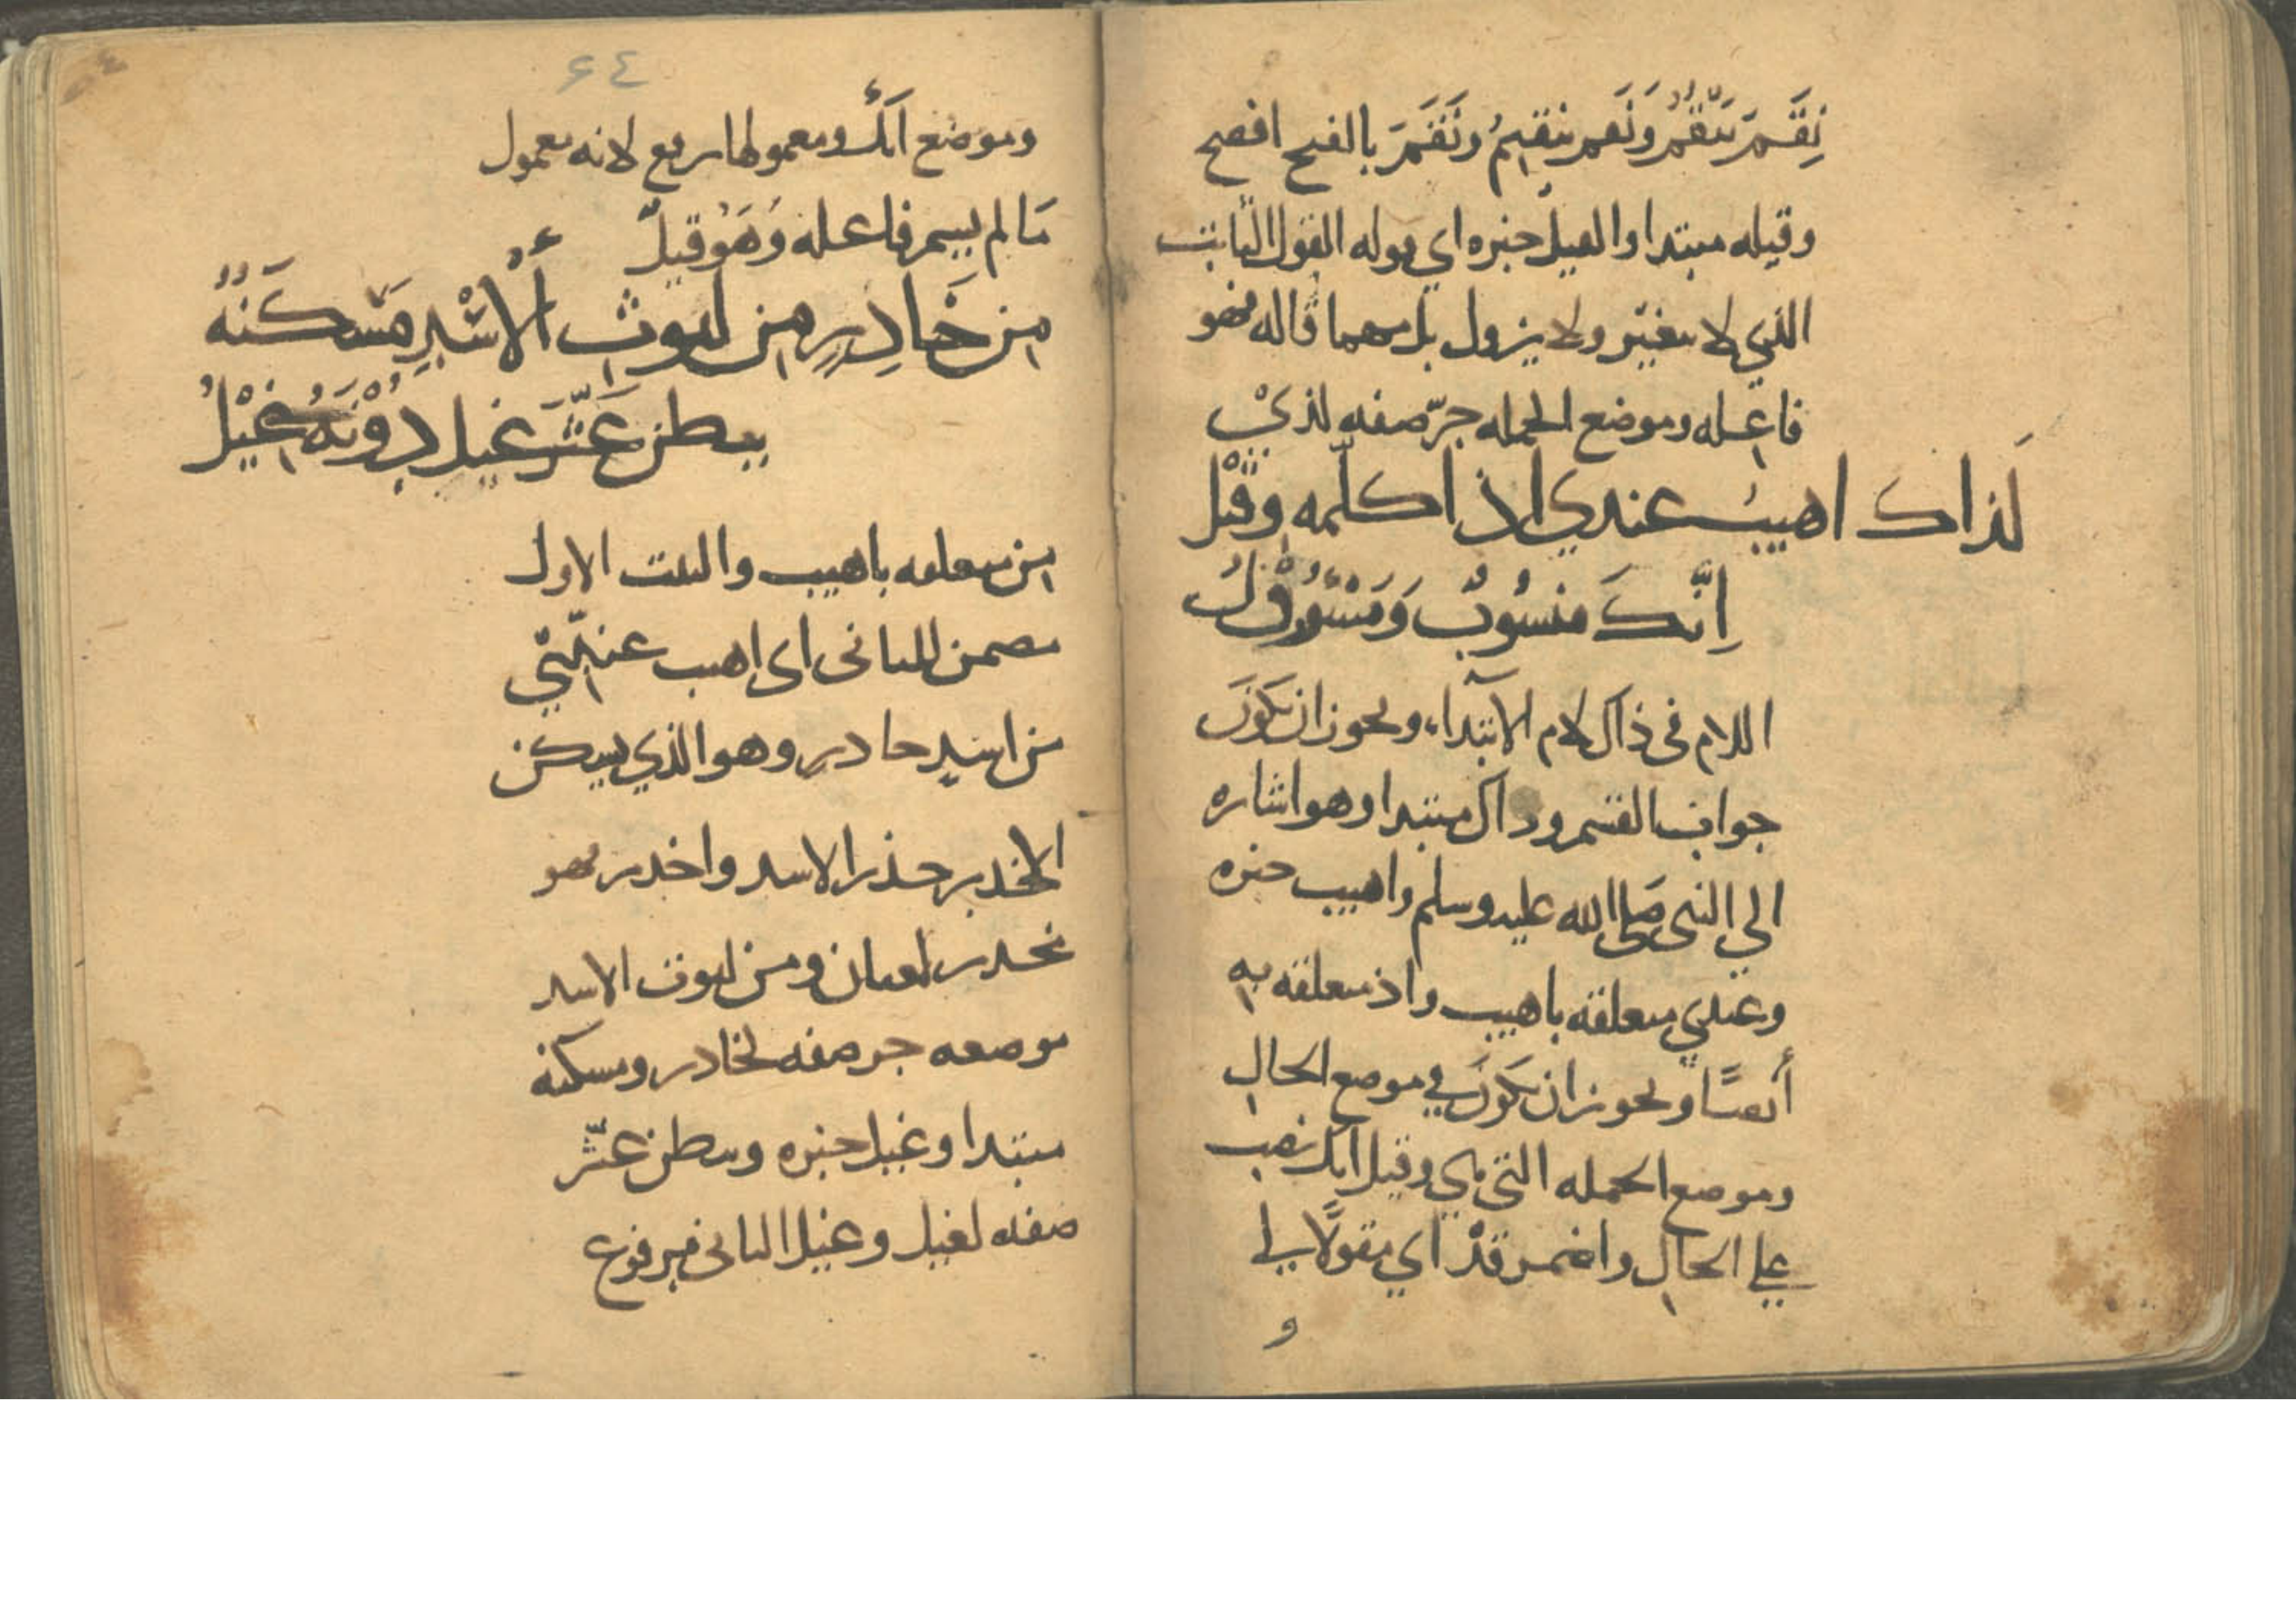 نِقَم يَنْقَمُ وَنَقَم ينقِمُ ونَقَمَ بالفتح افصح
وقيله مبتدا والقيل خبره اي قوله القول الثابت
الذي لا يتغير ولا يزول بل مهما قاله فهو
فاعله وموضع الجمله جرّ صفه لذي
لَذاك اهيبُ عندي اذ اكلّمه وقيْل
اِنَّكَ منسُوبٌ وَمَسْؤولُ
اللام في ذاك لام الابتداء ويجوز ان يكَونَ
جواب القسم وذاك مبتدا وهو اشاره
الي النبي صَلى الله عليه وسلم واهيب خبره
وعندي متعلقه باهيب واذ متعلقه به
أيضًا ويجوز ان يكَونَ في موضع الحال
وموضع الجمله التي هي وقيل انك نصب
علي الحال واضمر قدْ اي مقولًا لي
و
٦٤
وموضع اَنك ومعمولها رفع لانه معمول
مَا لم يسم فاعله وَهَوُ قيلَ
مِن خَادِرٍ مِن ليوثِ اُلْاسْدِ مَسكَنُهُ
ببطن عَثَّرَ غيل دُوْنَهُ غِيْلُ
من متعلقه باهيب والبيت الاول
مضمن للثاني اي اهيب عندي
من اسدٍ خادر وهو الذي يسكن
الاخدر خدر الاسد واخدر فهو
مخدر لغتان ومن ليوث الاسد
موضعه جر صفه لخادر ومسكنه
مبتدا وغيل خبره وببطن عثّر
صفه لغيل وغيل الثاني مرفوع